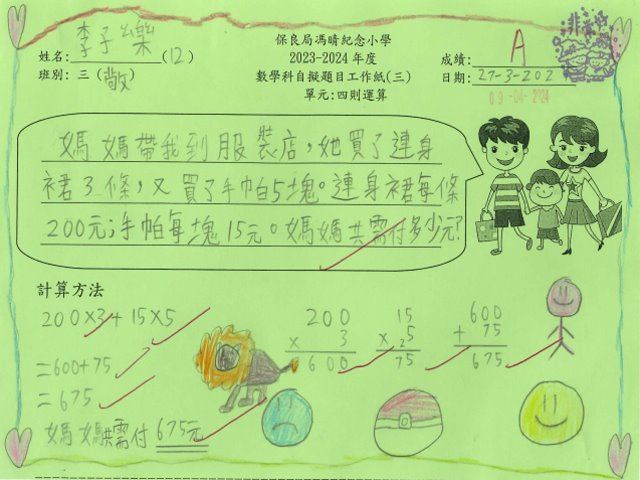 李子樂
姓名:(12)
保良局馮晴紀念小學
2023-2024年度
數學科自擬題目工作紙(三)
單元:四則運算
班別: 三(敬)
成績: A
日期: 27-3-202
09 -04- 2024
非常好
媽媽帶我到服裝店，她買了連身
裙3條，又買了手帕5塊。連身裙每條
200元；手帕每塊15元。媽媽共需付多少元？
計算方法
200×3+15×5
=600+75
=675
媽媽共需付 675元
200
× 3
600
15
× 5
75
600
+ 75
675